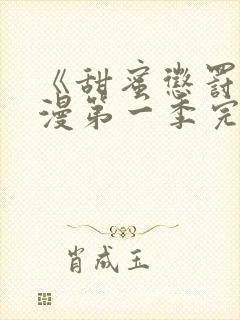 《甜蜜惩罚
漫第一季完
肖成玉